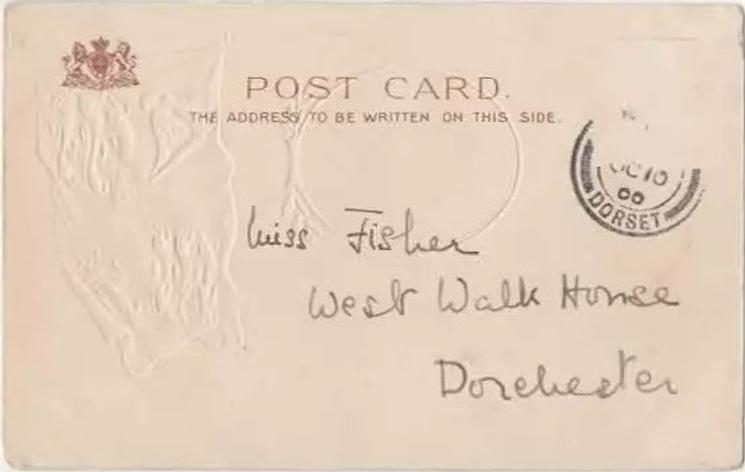 POST CARD.
THE ADDRESS TO BE WRITTEN ON THIS SIDE.
OC 10
00
DORSET
Miss Fisher
West Walk House
Dorchester